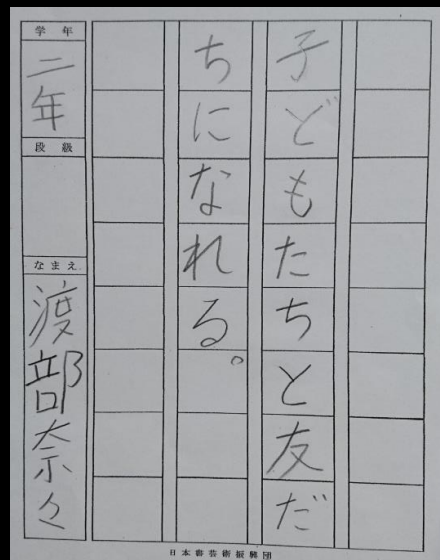 子どもたちと友だ
ちになれる。
学年
二年
段級
なまえ
渡部奈々
日本書芸術振興団